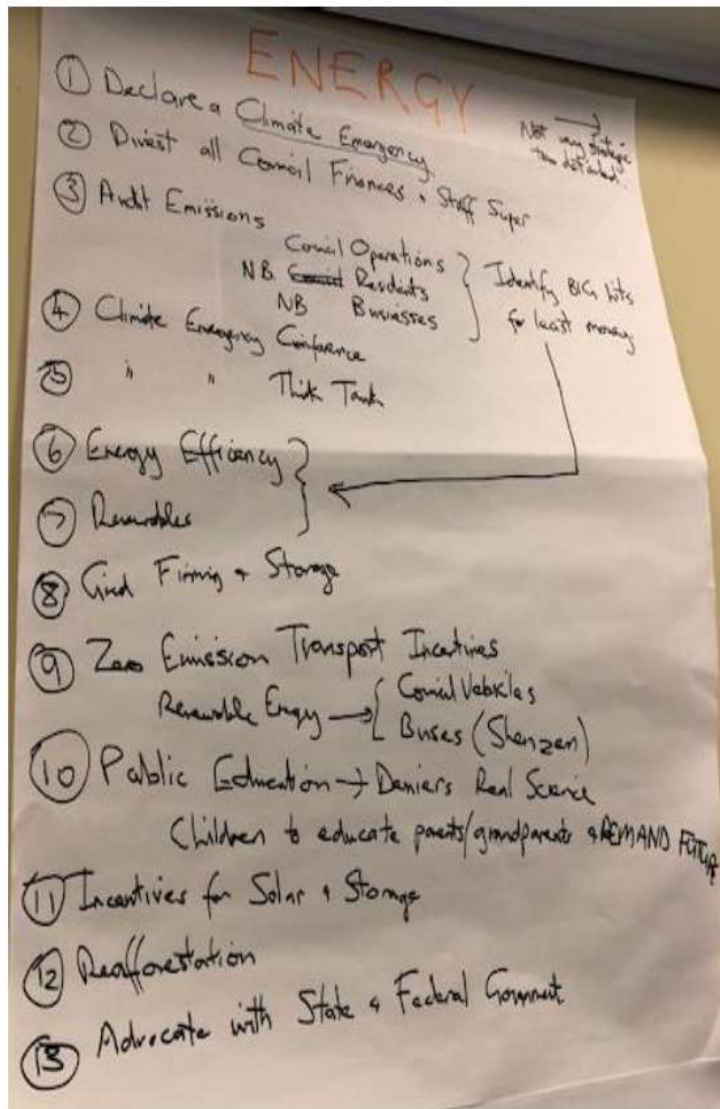 ENERGY
① Declare a Climate Emergency
→
Not very strategic
too detailed.
② Divest all Council Finances + Staff Super
③ Audit Emissions
Council Operations
NB Residents
NB Businesses
Identify BIG hits
for least money
④ Climate Emergency Conference
⑤ " " Think Tank
⑥ Energy Efficiency
⑦ Renewables
⑧ Grid Firming + Storage
⑨ Zero Emission Transport Incentives
Renewable Energy → Council Vehicles
Buses (Shenzen)
⑩ Public Education → Deniers Real Science
Children to educate parents/grandparents & DEMAND FUTUR
⑪ Incentives for Solar & Storage
⑫ Reafforestation
⑬ Advocate with State & Federal Government